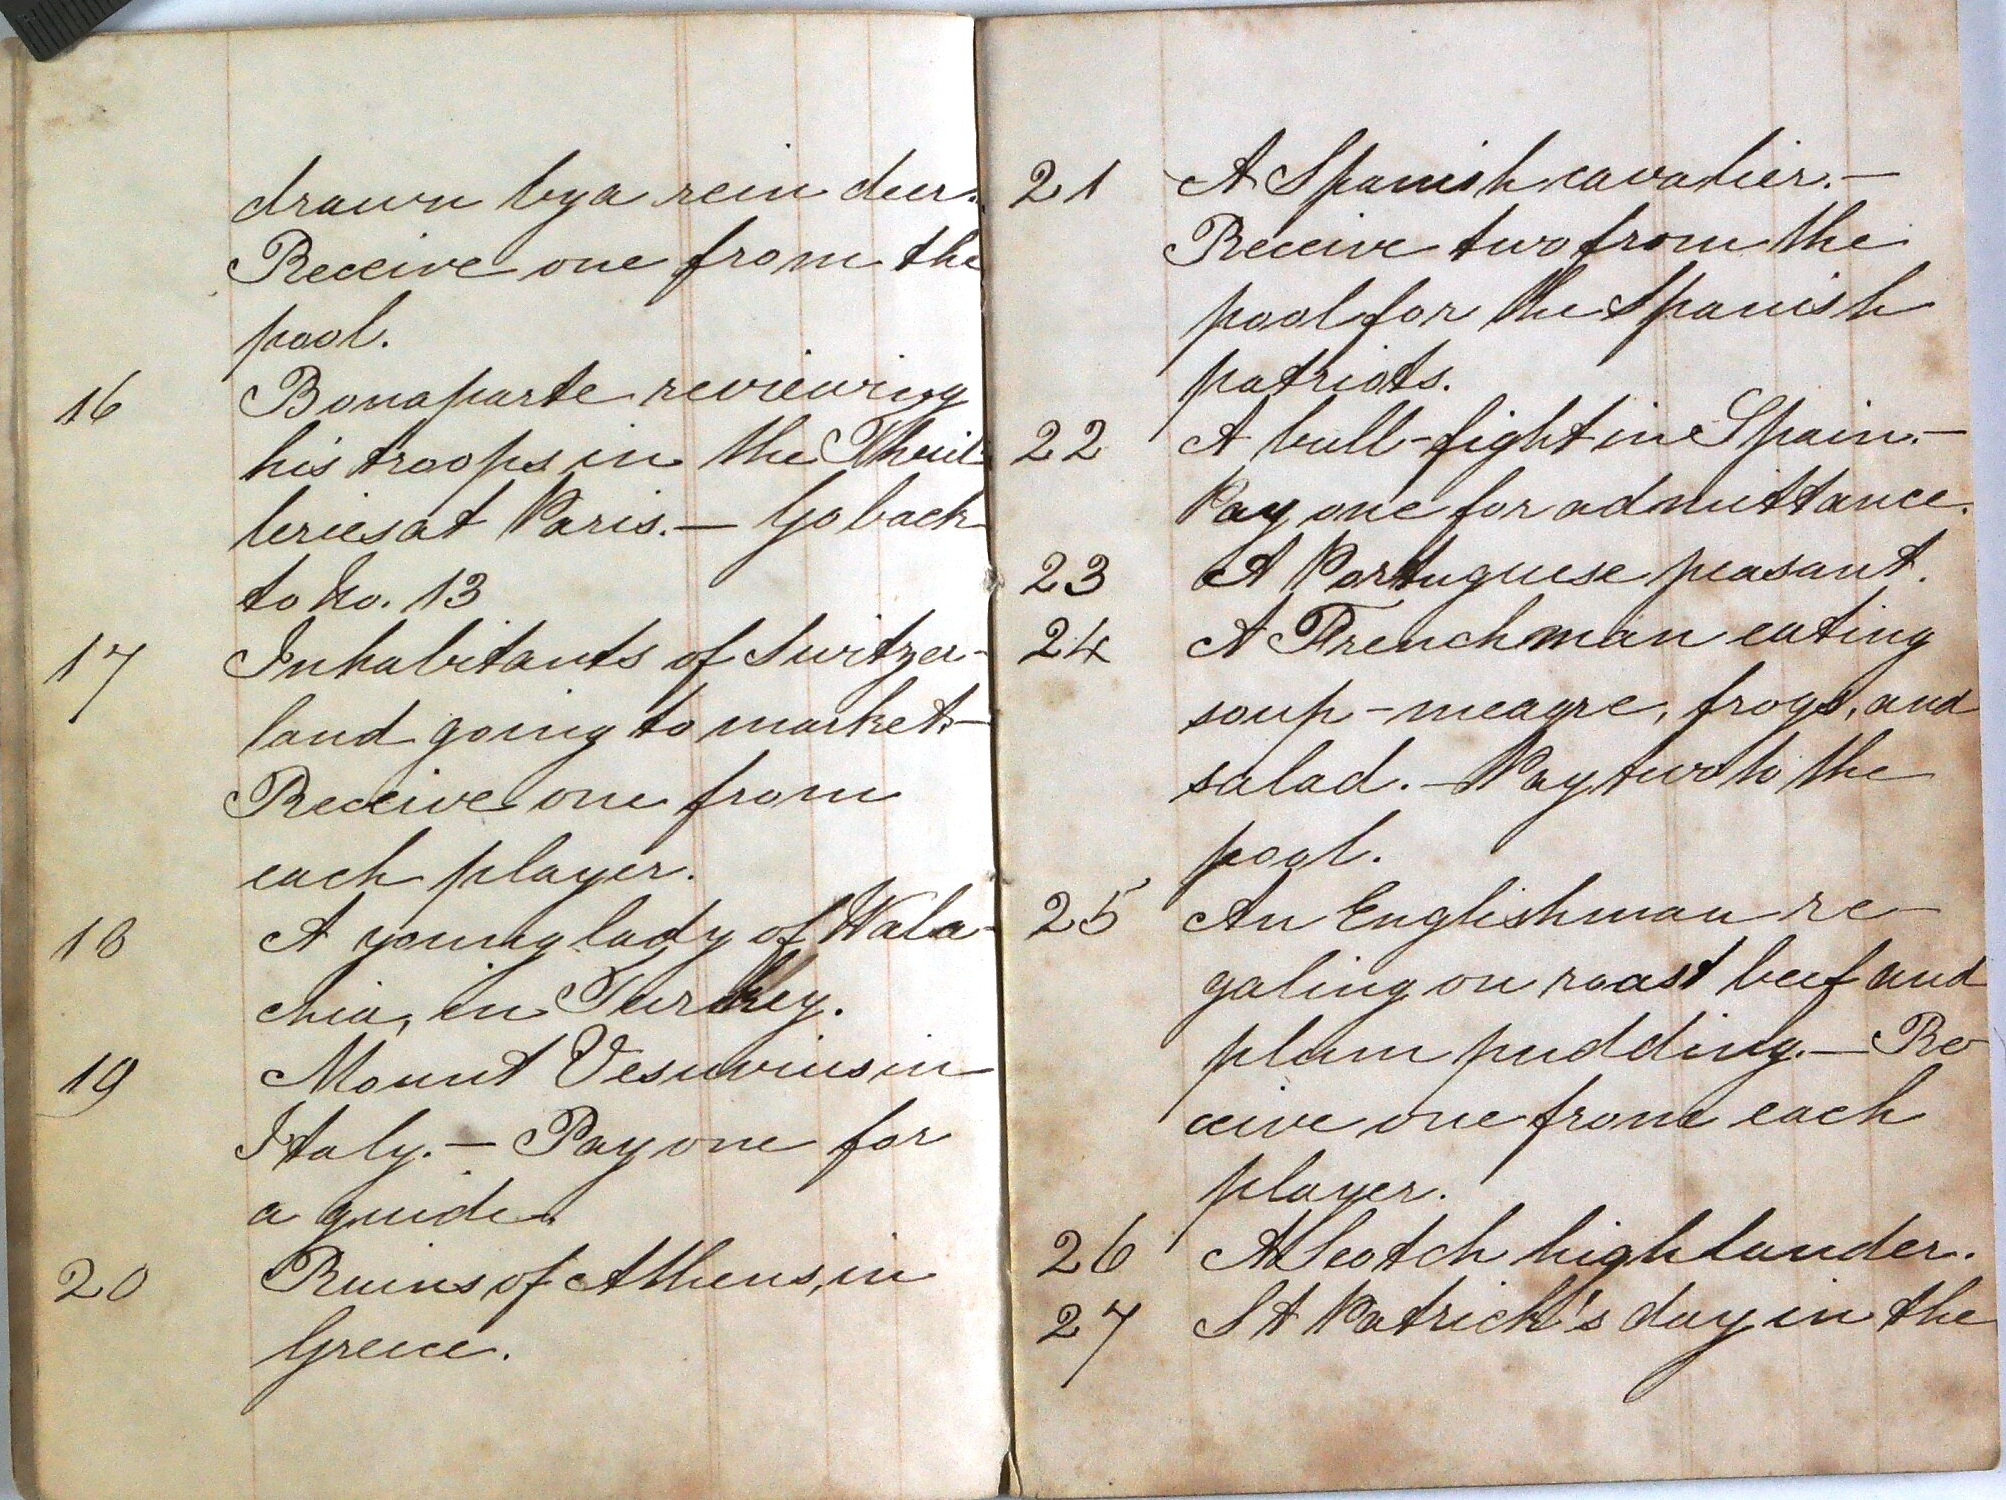 drawn by a rein deer.
Receive one from the
pool.
16 Bonaparte reviewing
his troops in the Thuil-
leries at Paris. — Go back
to No. 13
17 Inhabitants of Switzer-
land going to market. —
Receive one from
each player.
18 A young lady of Wala-
chia, in Turkey.
19 Mount Vesuvius in
Italy. — Pay one for
a guide.
20 Ruins of Athens, in
Greece.
21 A Spanish cavalier. —
Receive two from the
pool for the Spanish
patriots.
22 A bull-fight in Spain. —
Pay one for admittance.
23 A Portuguese peasant.
24 A Frenchman eating
soup-meagre, frogs, and
salad. — Pay two to the
pool.
25 An Englishman re-
galing on roast beef and
plum pudding. — Re-
ceive one from each
player.
26 A Scotch highlander.
27 St Patrick's day in the